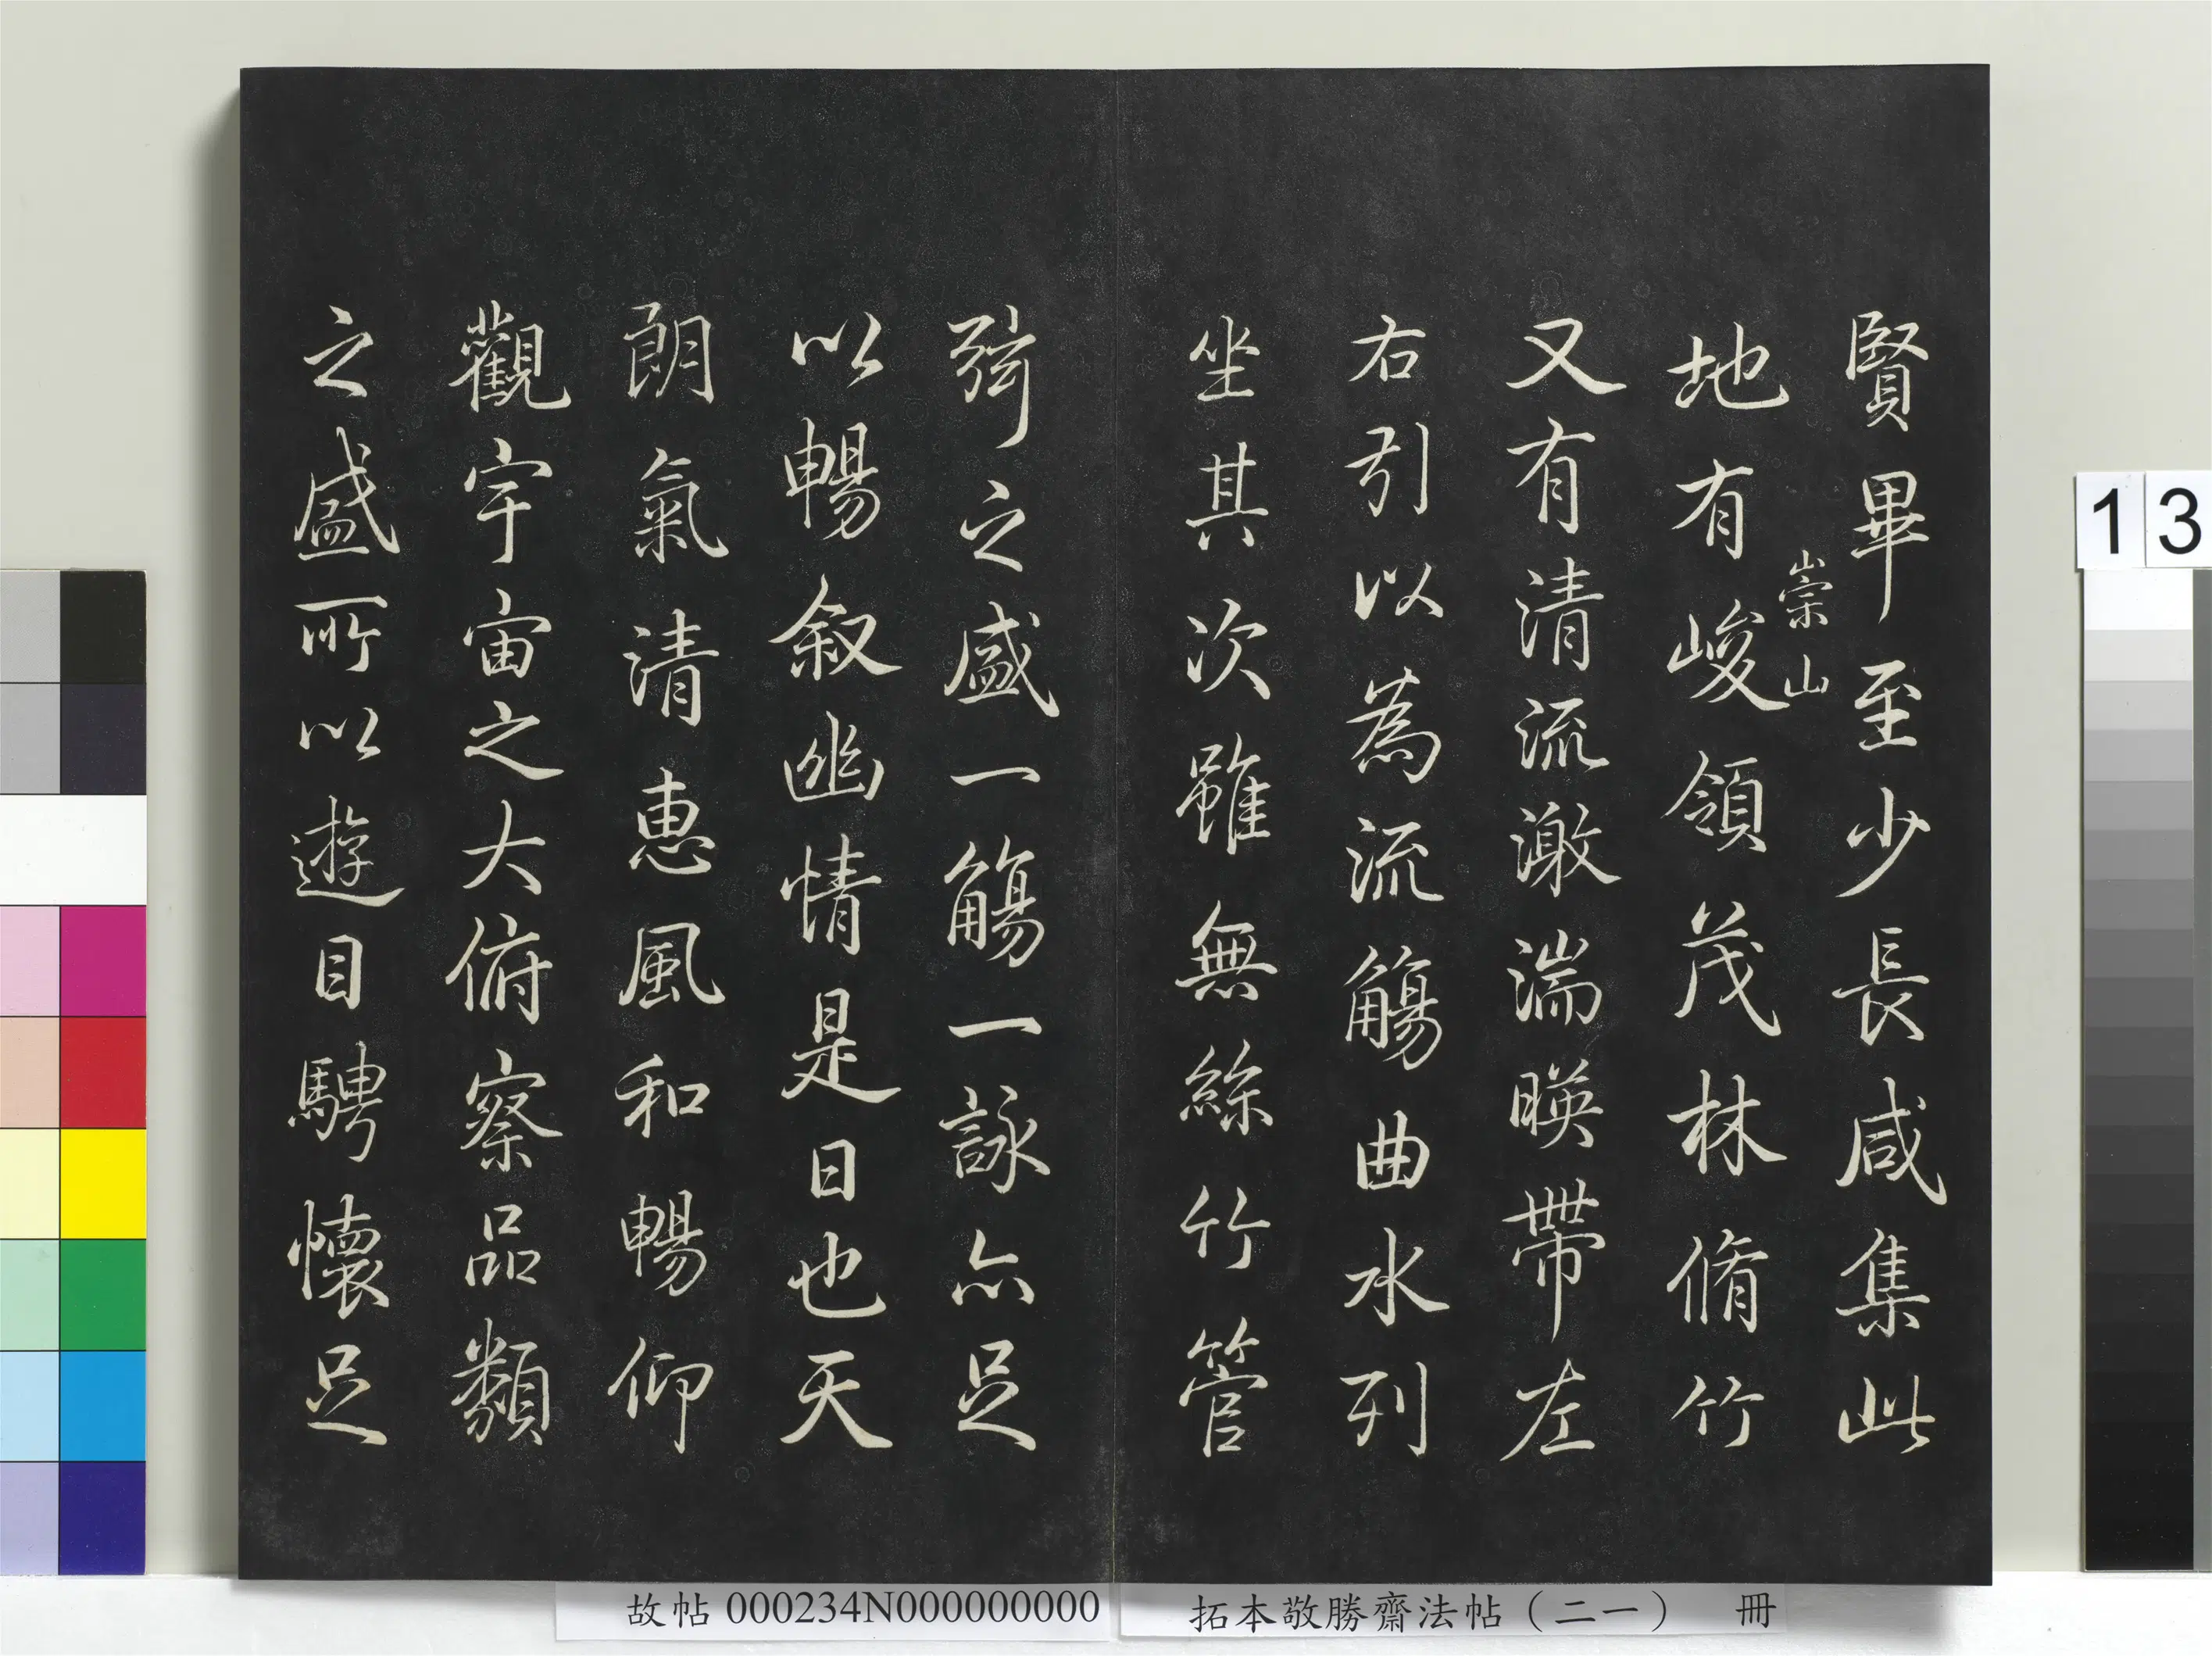 賢畢至少長咸集此
地有峻領茂林脩竹
崇山
又有清流激湍暎帶左
右引以為流觴曲水列
坐其次雖無絲竹管
弦之盛一觴一詠亦足
以暢叙幽情是日也天
朗氣清惠風和暢仰
觀宇宙之大俯察品類
之盛所以遊目騁懷足
13
故帖 000234N000000000
拓本敬勝齋法帖（二一） 冊